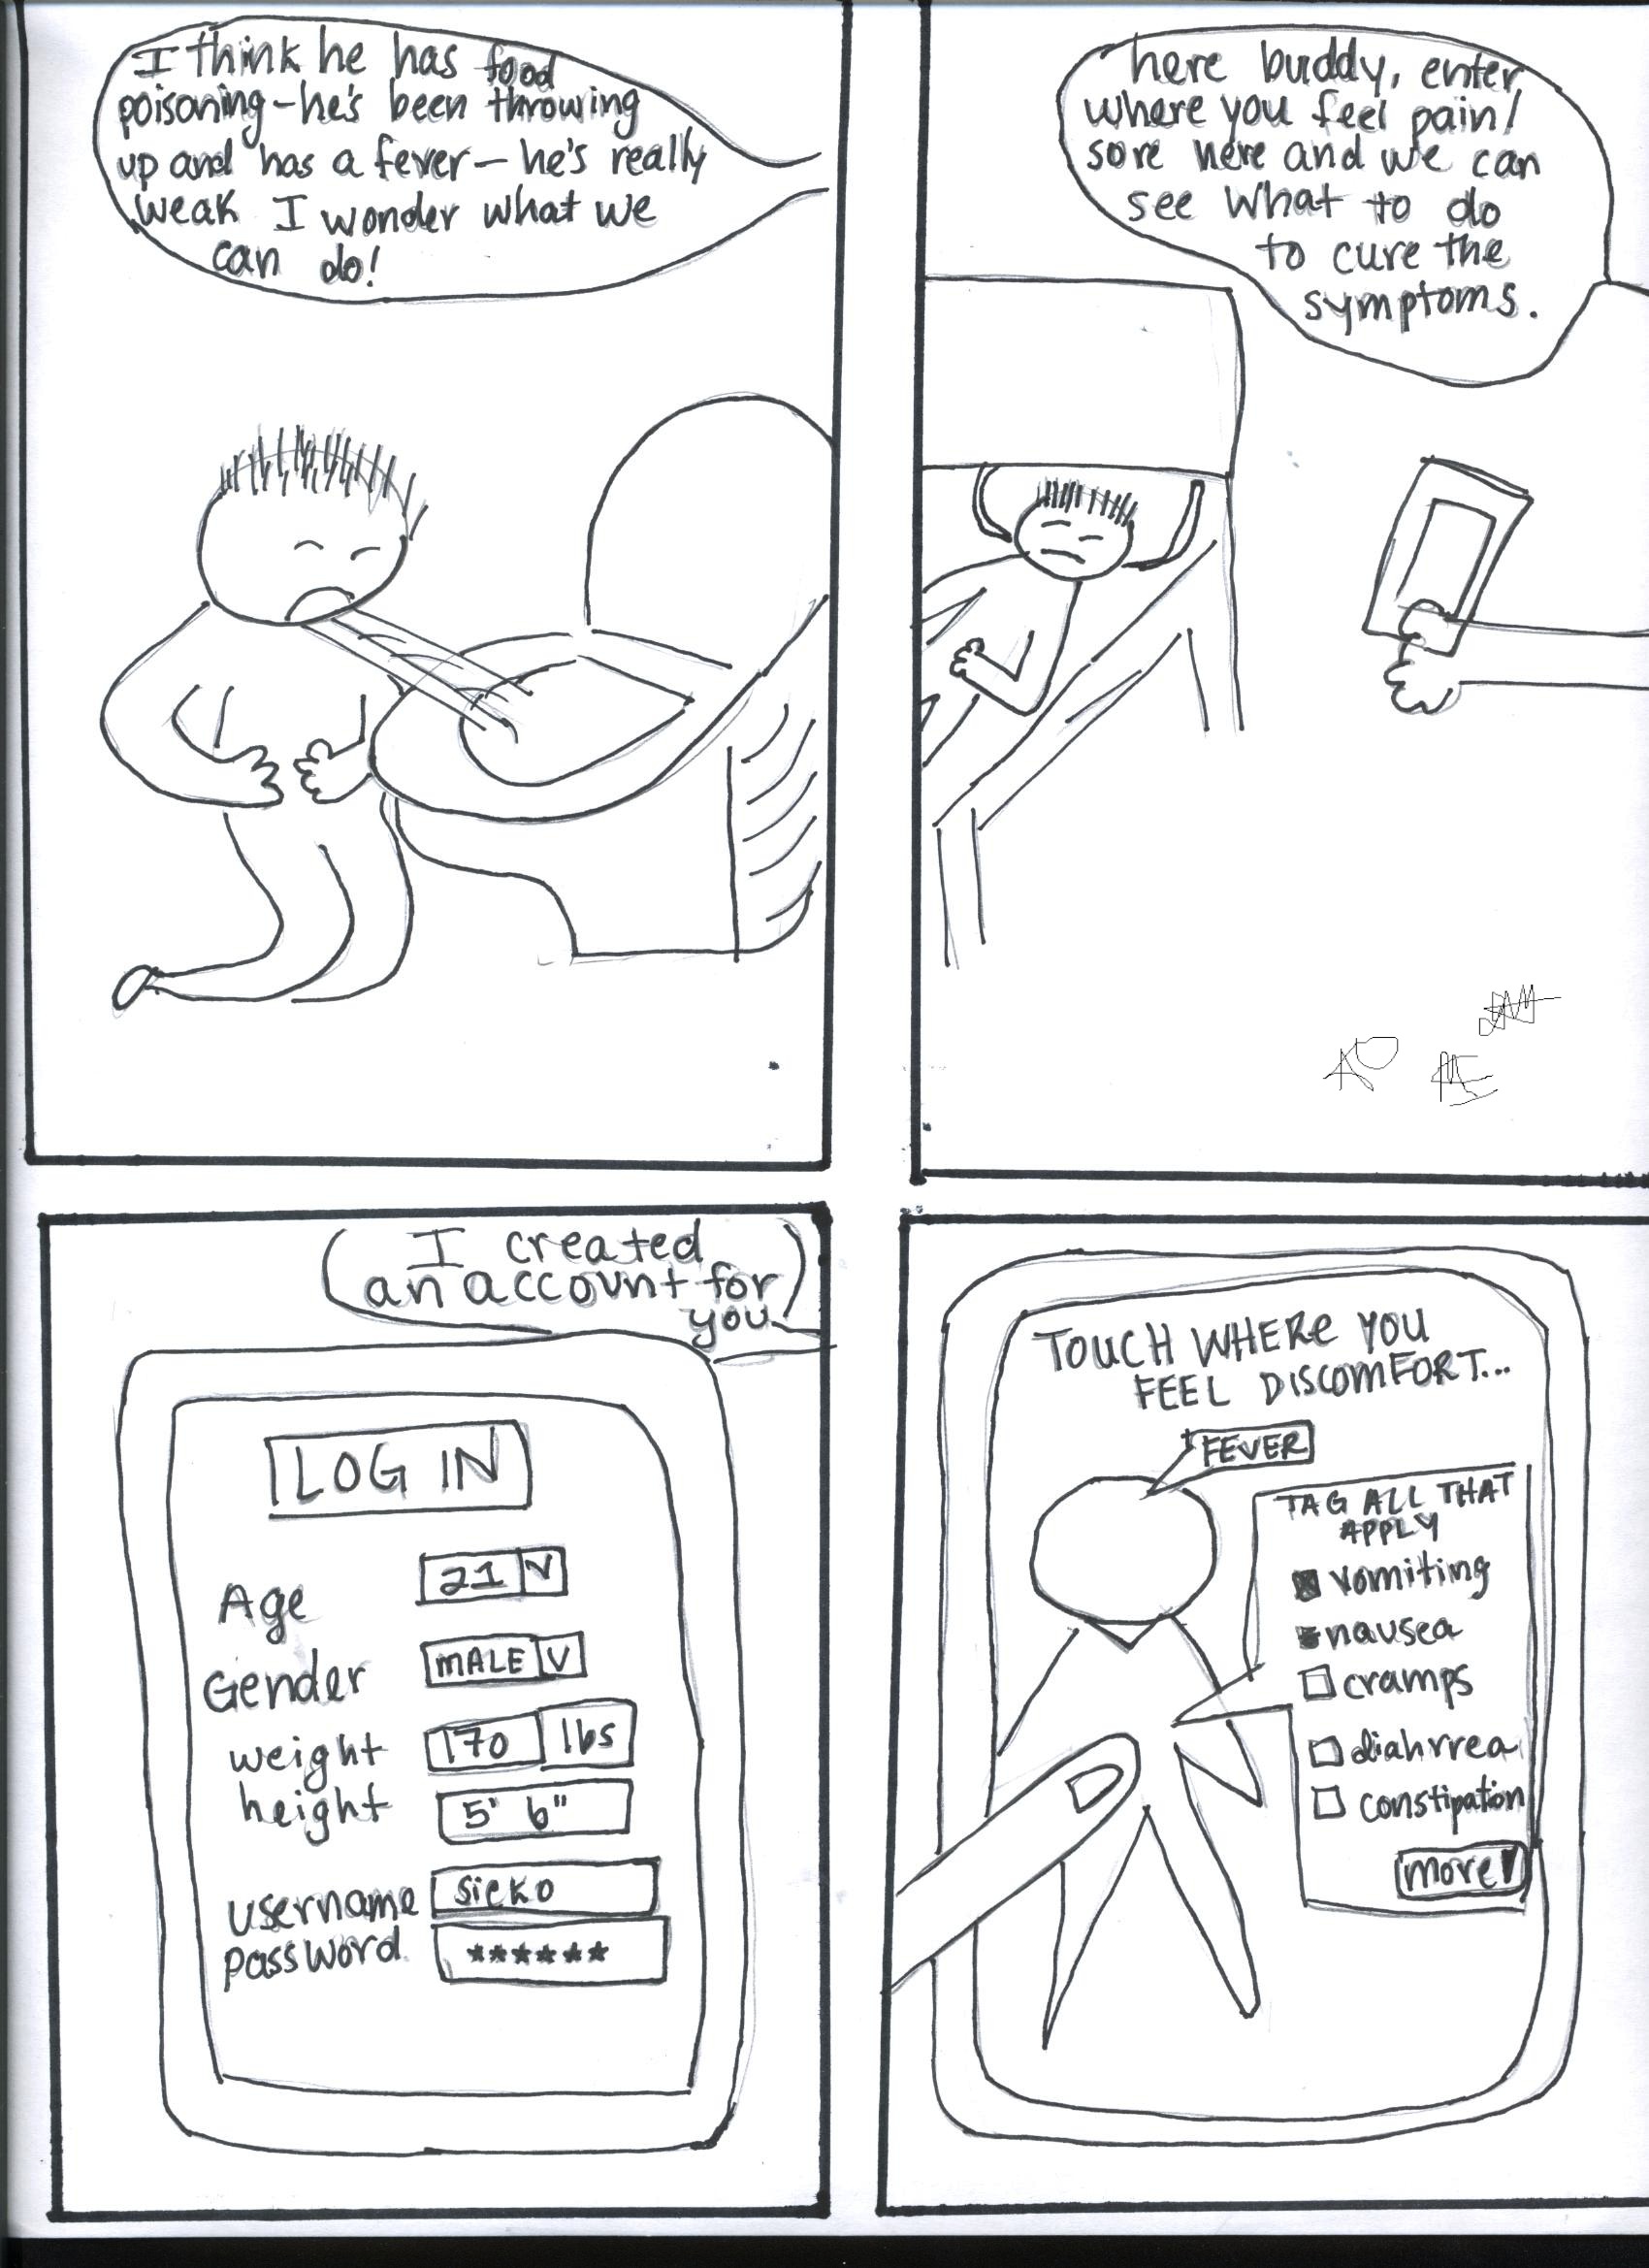 I think he has food
poisoning - he's been throwing
up and has a fever - he's really
weak I wonder what we
can do!
here buddy, enter
where you feel pain/
sore here and we can
see what to do
to cure the
symptoms.
I created
an account for
you
LOG IN
Age 21 V
Gender MALE V
weight 170 lbs
height 5' 6"
username sicko
password ******
TOUCH WHERE YOU
FEEL DISCOMFORT...
FEVER
TAG ALL THAT
APPLY
vomiting
nausea
cramps
diahrrea
constipation
more V